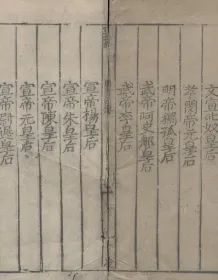 文宣叱奴皇后
孝閔帝元皇后
明帝獨孤皇后
武帝阿史那皇后
武帝李皇后
宣帝楊皇后
宣帝朱皇后
宣帝陳皇后
宣帝元皇后
宣帝尉遲皇后